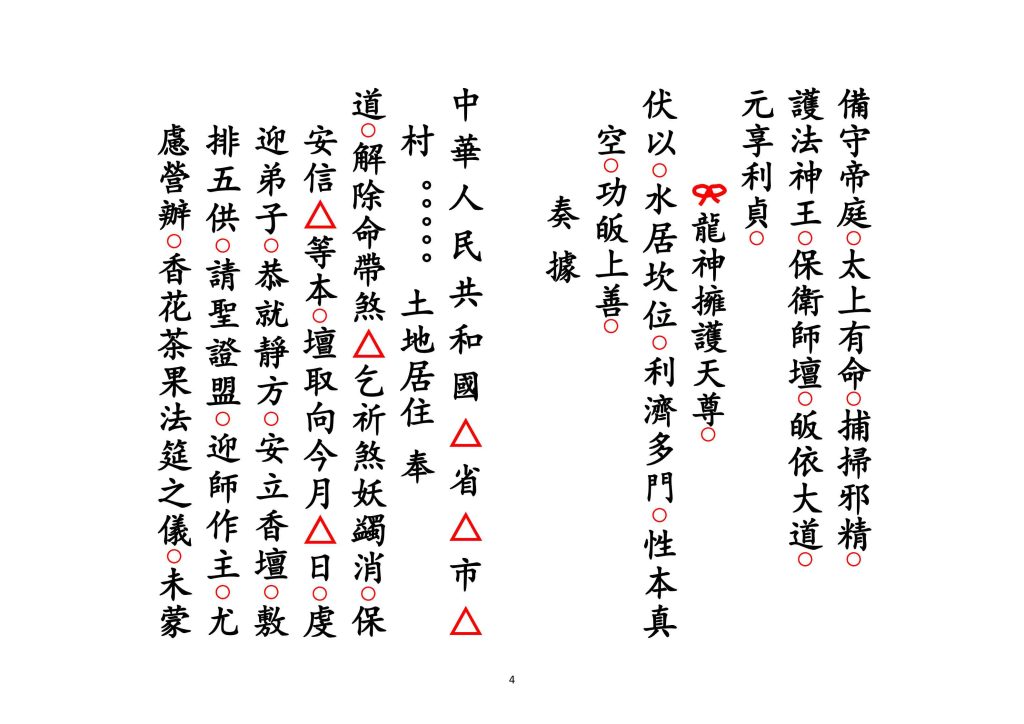 備守帝庭○太上有命○捕掃邪精○
護法神王○保衛師壇○皈依大道○
元享利貞○
龍神擁護天尊○
伏以○水居坎位○利濟多門○性本真
空○功皈上善○
奏據
中華人民共和國△省△市△
村。。。。。土地居住奉
道○解除命帶煞△乞祈煞妖蠲消○保
安信△等本○壇取向今月△日○虔
迎弟子○恭就靜方○安立香壇○敷
排五供○請聖證盟○迎師作主○尤
慮營辦○香花茶果法筵之儀○未蒙
4